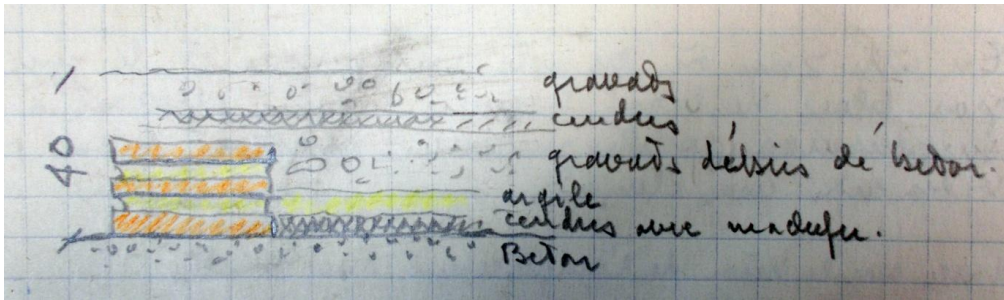 40
gravats
cendres
gravats débris de béton.
argile
cendres avec mâchefer.
Béton